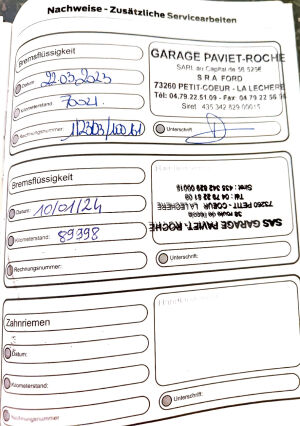 Nachweise - Zusätzliche Servicearbeiten
Bremsflüssigkeit
Datum: 22.03.2023
Kilometerstand: 76021
Rechnungsnummer:
GARAGE PAVIET-ROCHE
SARL au Capital de
S R A FORD
73260 PETIT-COEUR - LA LECHERE
Tél: 04.79.22.51.09 - Fax: 04 79 22 56
Siret 435 342 829 00015
Unterschrift
Bremsflüssigkeit
Datum: 10/01/24
Kilometerstand: 89998
Rechnungsnummer:
SAS GARAGE PAVIET-ROCHE
38 route de l'école
73260 PETIT - COEUR LA LECHERE
Unterschrift:
Zahnriemen
Datum:
Kilometerstand:
Rechnungsnummer
Unterschrift: